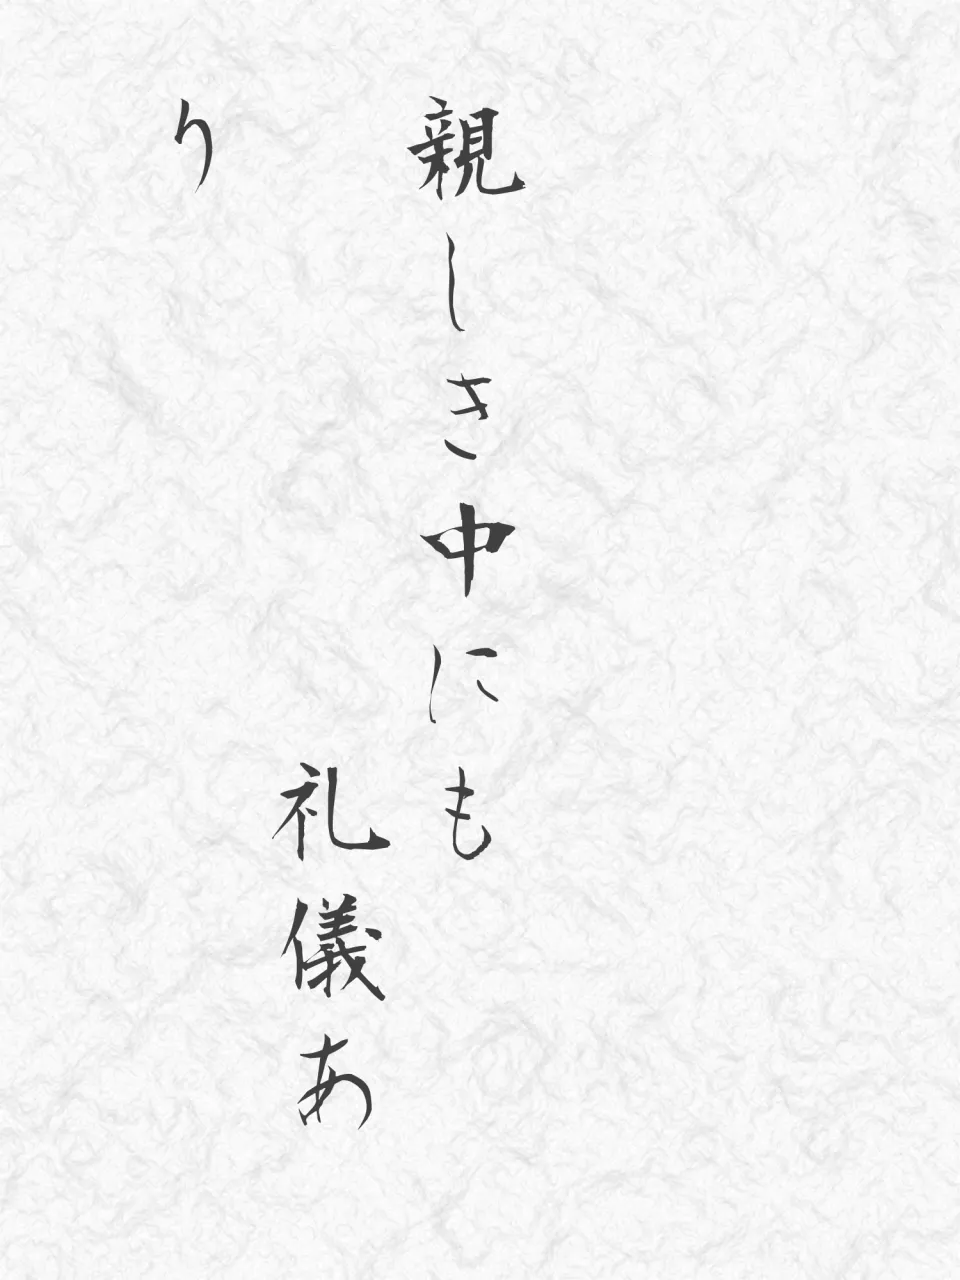 親しき中にも
礼儀あ
り